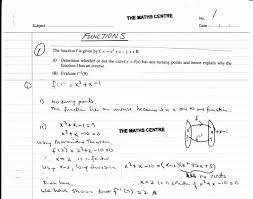 THE MATHS CENTRE
No. 1
Subject
Date
FUNCTIONS
1
The function f is given by f: x → x³ + x - 1, x ∈ R
(i) Determine whether or not the curve y = f(x) has any turning points and hence explain why the
function f has an inverse
(ii) Evaluate f⁻¹(9).
f(x) = x³ + x - 1
i) No turning points,
The function has an inverse because it is a one to one function.
ii) x³ + x - 1 = 9
x³ + x - 10 = 0
THE MATHS CENTRE
x³ + x - 1
Using Remainder Theorem,
f(2) = 2³ + 2 - 10 = 0
∴ x - 2 is a factor
Using long division x³ + x - 10 = (x - 2)(x² + 2x + 5)
no roots
∴ x = 2 is a solution of x³ + x - 10 = 0
We have shown that f⁻¹(9) = 2